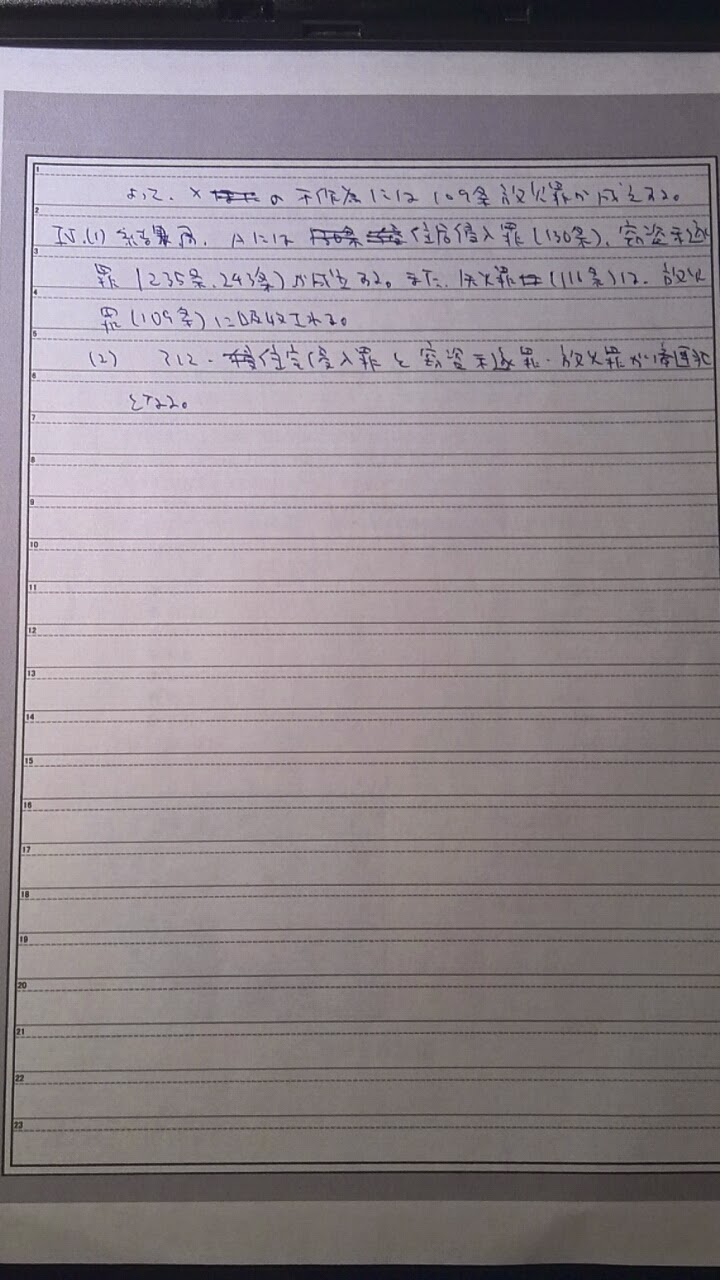 よって、Xの不作為には109条放火罪が成立する。
Ⅳ.(1) 結果、Aには住居侵入罪(130条)、窃盗未遂
罪(235条、243条)が成立する。また、失火罪(116条)は、放火
罪(109条)に吸収される。
(2) そして、住居侵入罪と窃盗未遂罪・放火罪が牽連犯
となる。
1
2
3
4
5
6
7
8
9
10
11
12
13
14
15
16
17
18
19
20
21
22
23